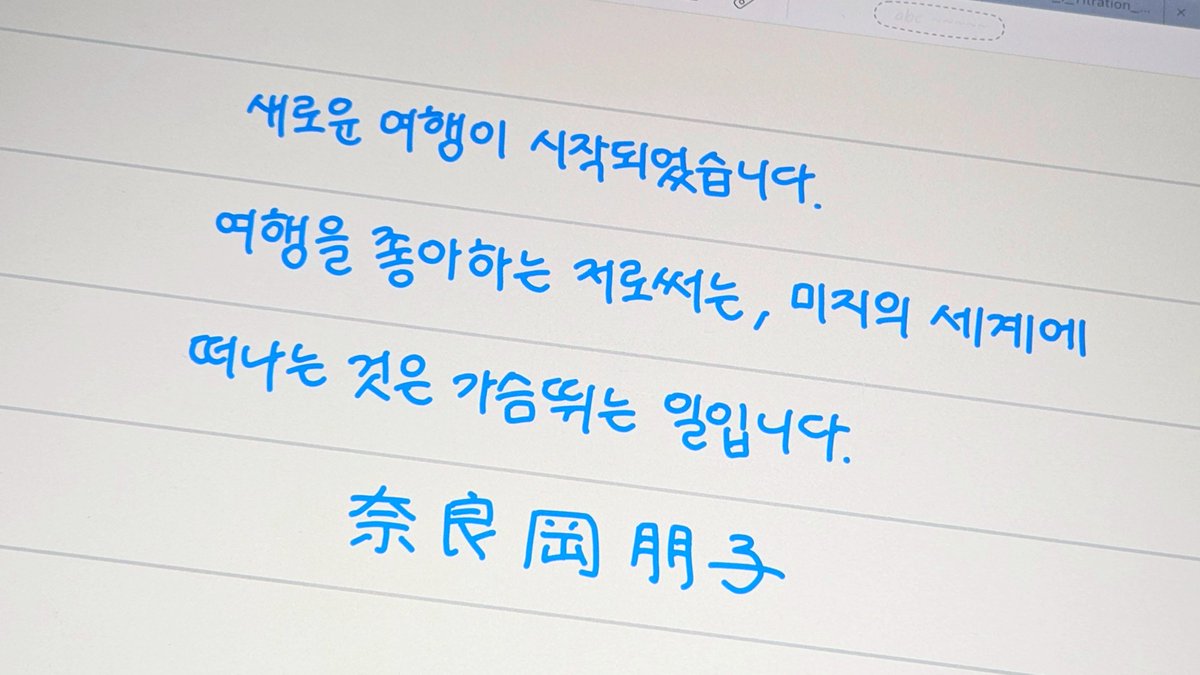 abc ~~~~~
새로윤 여행이 시작되었습니다.
여행을 좋아하는 저로써는, 미지의 세계에
떠나는 것은 가슴뛰는 일입니다.
奈良岡朋子